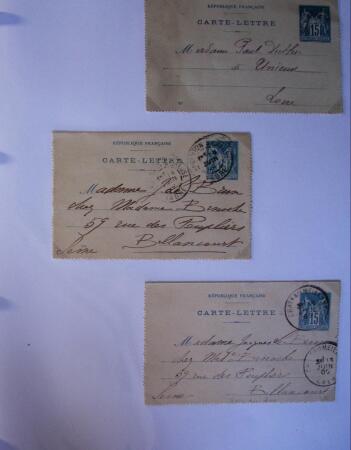 RÉPUBLIQUE FRANÇAISE
CARTE-LETTRE
15
Madame Paul
à Unieux
Loire
RÉPUBLIQUE FRANÇAISE
CARTE-LETTRE
Madame J. de
chez Madame
59 rue des Peupliers
Billancourt
Seine
RÉPUBLIQUE FRANÇAISE
CARTE-LETTRE
15
Madame Jacques de
chez Mme
59 rue des Peupliers
Billancourt
Seine